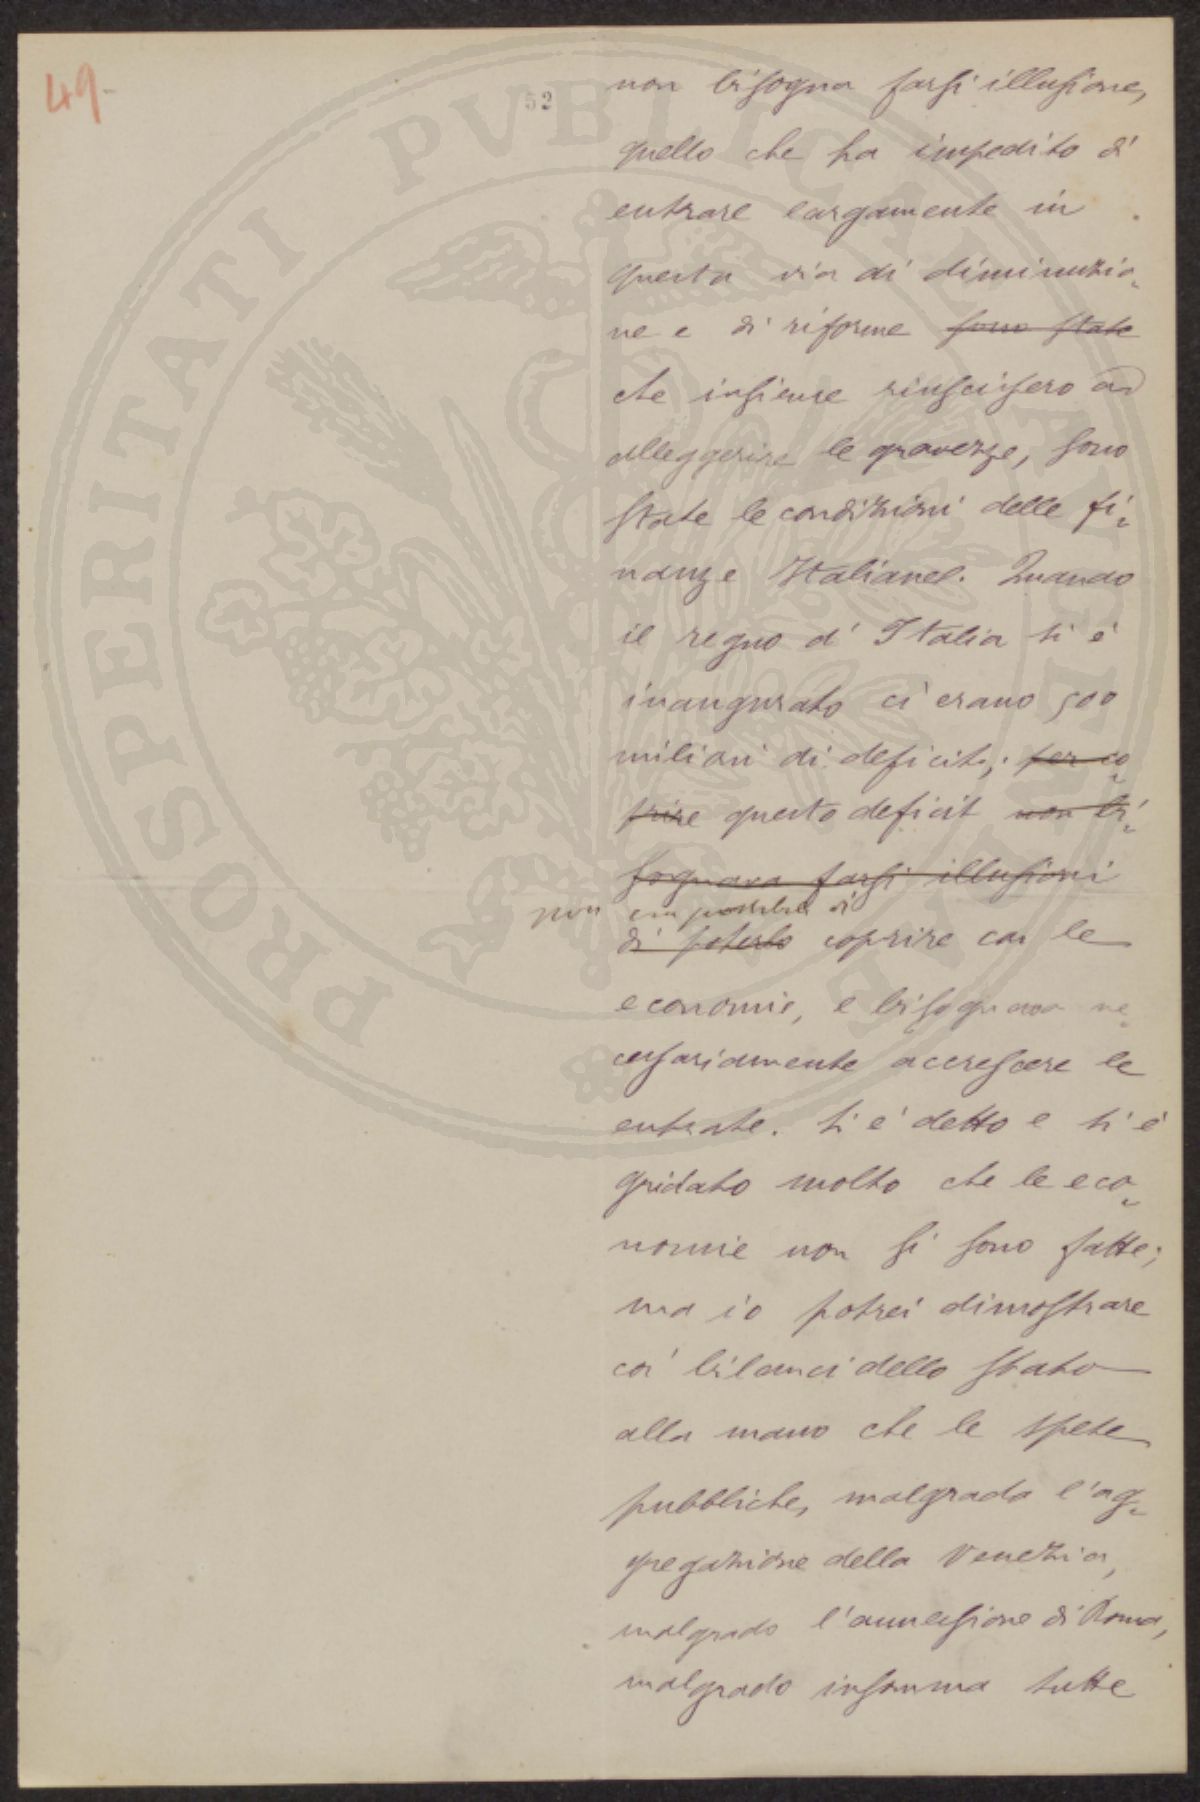 49-
52
PROSPERITATI PVBLICAE AVGENDAE
non bisogna farsi illusione,
quello che ha impedito di
entrare largamente in
questa via di diminuzio-
ne e di riforme sono state
che insieme riuscissero ad
alleggerire le gravezze, sono
state le condizioni delle fi-
nanze Italiane. Quando
il regno d'Italia si è
inaugurato ci erano 500
milioni di deficit; per co-
prire questo deficit non bi-
sognava farsi illusioni
non era possibile di
di poterlo coprire con le
economie, e bisognava ne-
cessariamente accrescere le
entrate. Si è detto e si è
gridato molto che le eco-
nomie non si sono fatte;
ma io potrei dimostrare
coi bilanci dello Stato
alla mano che le spese
pubbliche, malgrado l'ag-
gregazione della Venezia,
malgrado l'annessione di Roma,
malgrado insomma tutte